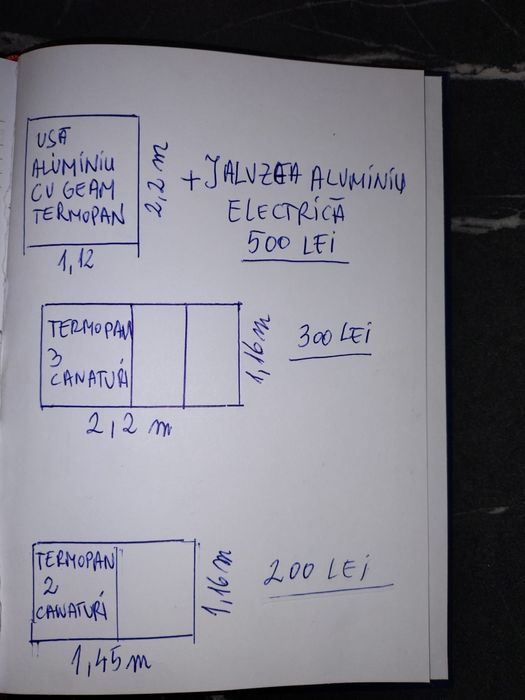 UȘĂ
ALUMINIU
CU GEAM
TERMOPAN
2,2 m
1,12
+ JALUZEA ALUMINIU
ELECTRICĂ
500 LEI
TERMOPAN
3
CANATURI
1,16 m
2,2 m
300 LEI
TERMOPAN
2
CANATURI
1,16 m
1,45 m
200 LEI